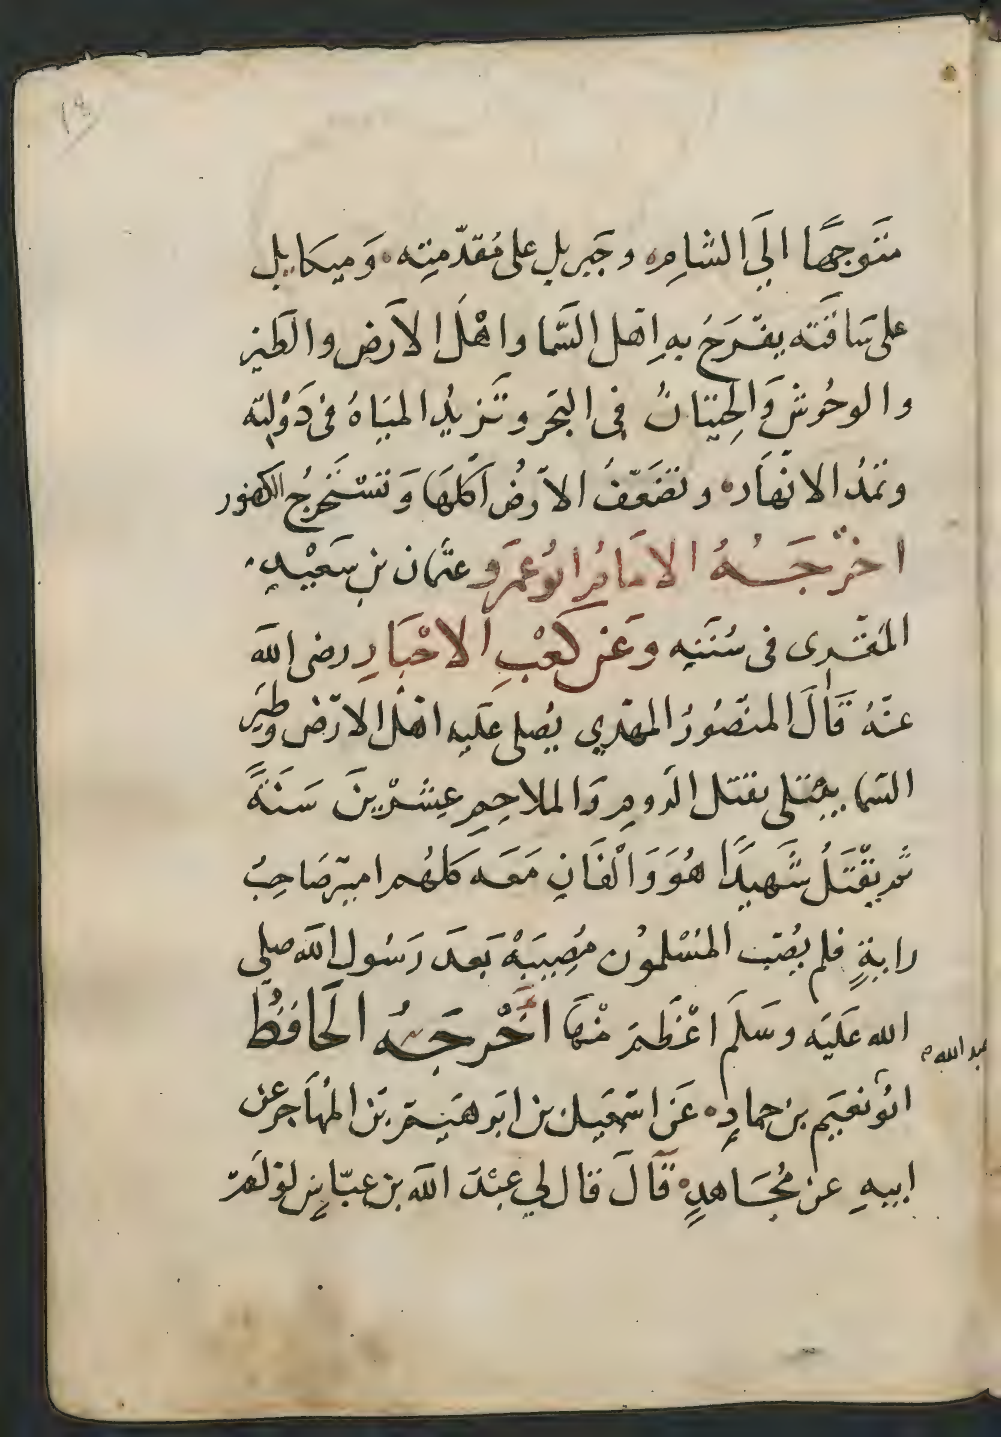 ١٩
متوجهًا الي الشامِ وجبريل على مُقدّمتِه وَميكايل
على سَاقته يفرَحُ بهِ اهل السّما واهْل الارض والطير
والوحُوش وَالحِيتانُ فى البَحر وتَزيدُ المياهُ فى دَوْلته
وتمدُ الانهَار وتضعّفُ الارضُ اكلهَا وَتستَخرجُ الكنوز
اخرَجَهُ الامَامُ ابُو عَمرو عثمان بن سَعيْدٍ
المقرى فى سُنَنِه وعَن كعْبِ الاحْبَارِ رضى الله
عنهُ قَالَ المنصُورُ المهدِي يُصلى عَليه اهْل الارض وطيَر
السَما يبتلى بقتل الرومِ وَالملاحِمِ عِشْرِينَ سَنَةً
ثم يُقْتَلُ شَهيدًا هُوَ وَالْفَانِ مَعَه كلهُم امير صَاحِبُ
رايةٍ فلم يُصَب المُسْلمُون مُصِيبَةْ بَعدَ رَسُول الله صلي
الله عَليَه وسَلم اعْظمَ مْنهَا اخْرجَهُ الحَافظُ
عبد الله
ابُو نعيَم بن حمادٍ عَن اسمعِيل بن ابرهيم بن المُهَاجر عن
ابيهِ عن مُجَاهدٍ قَالَ قال لي عبْدَ الله بن عبّاسٍ لوْ لَمْ